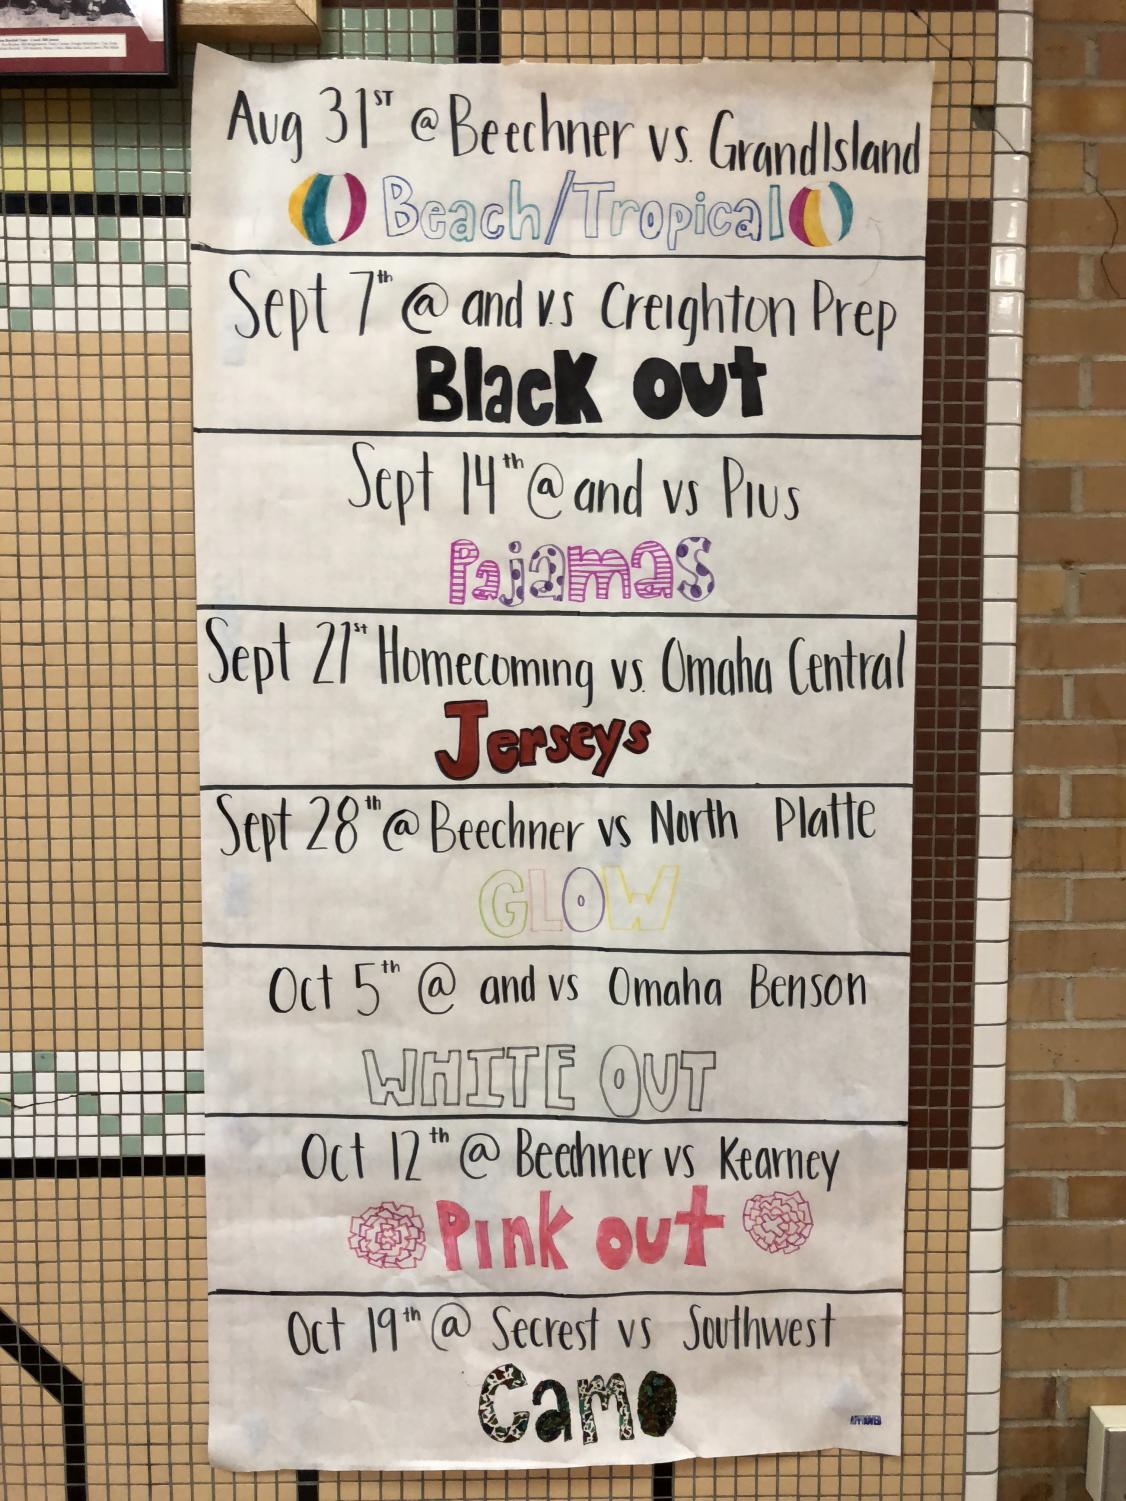 Aug 31ST @ Beechner vs. Grand Island
Beach/Tropical
Sept 7th @ and vs Creighton Prep
Black out
Sept 14th @ and vs Pius
Pajamas
Sept 21st Homecoming vs. Omaha Central
Jerseys
Sept 28th @ Beechner vs North Platte
GLOW
Oct 5th @ and vs Omaha Benson
WHITE OUT
Oct 12th @ Beechner vs Kearney
Pink out
Oct 19th @ Secrest vs Southwest
Camo
APPROVED